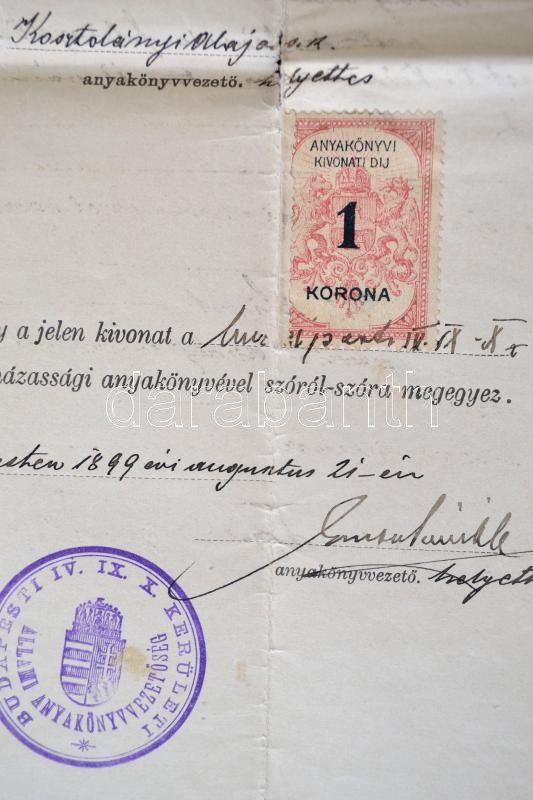 Kosztolányi Alajos s. k.
anyakönyvvezető. helyettes
ANYAKÖNYVI
KIVONATI DIJ
1
KORONA
y a jelen kivonat a IV. IX - X
házassági anyakönyvével szóról-szóra megegyez.
darabanth
esten 1899 évi augusztus 21-én
anyakönyvvezető. helyett
BUDAPESTI IV. IX. X KERÜLETI
ÁLLAMI ANYAKÖNYVVEZETŐSÉG